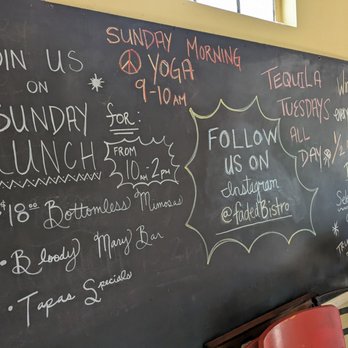 OIN US
ON
SUNDAY
UNCH
for:
FROM
10AM-2PM
$18.00 Bottomless Mimosas
• Bloody Mary Bar
• Tapas Specials
SUNDAY MORNING
YOGA
9-10AM
FOLLOW
US ON
Instagram
@fadedBistro
TEQUILA
TUESDAYS
ALL
DAY